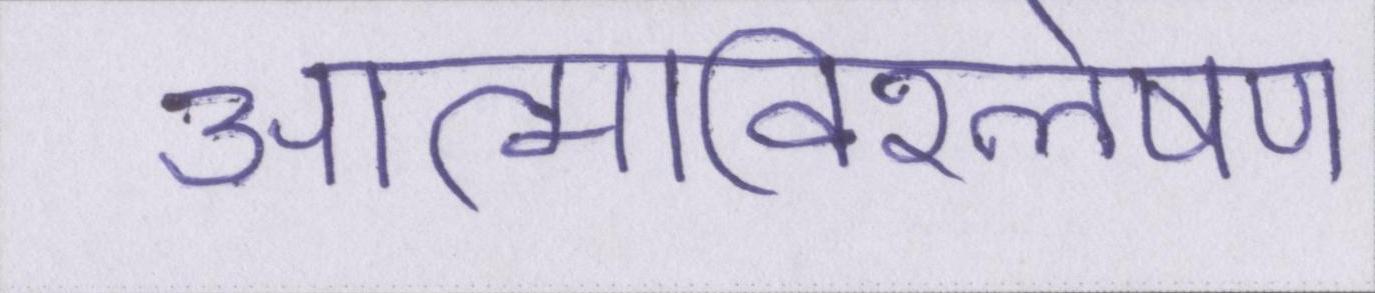 आत्माविश्लेषण